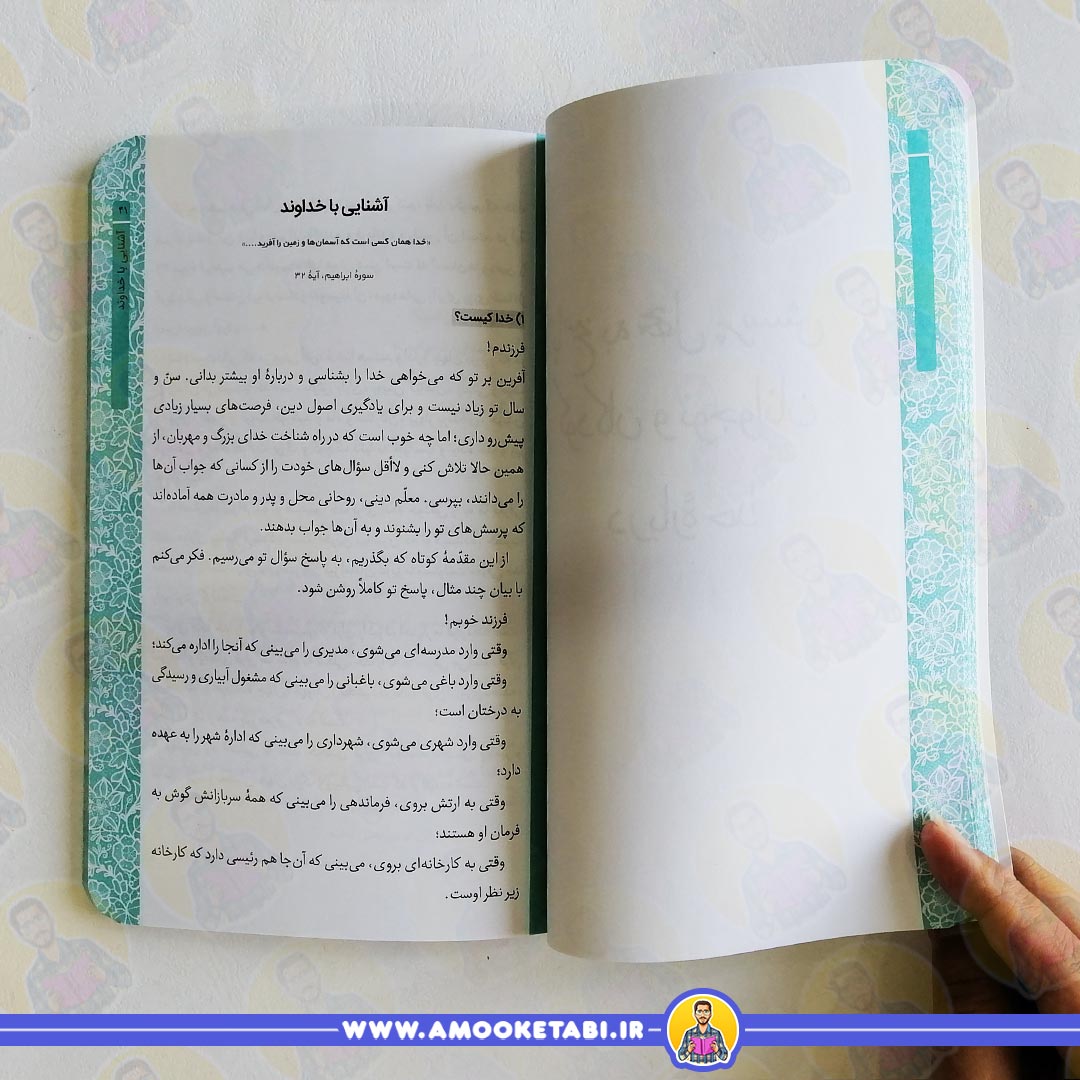 آشنایی با خداوند
«خدا همان کسی است که آسمان‌ها و زمین را آفرید....»
سورهٔ ابراهیم، آیهٔ ۳۲
۱) خدا کیست؟
فرزندم!
آفرین بر تو که می‌خواهی خدا را بشناسی و دربارهٔ او بیشتر بدانی. سنّ و
سال تو زیاد نیست و برای یادگیری اصول دین، فرصت‌های بسیار زیادی
پیش‌رو داری؛ اما چه خوب است که در راه شناخت خدای بزرگ و مهربان، از
همین حالا تلاش کنی و لاأقل سؤال‌های خودت را از کسانی که جواب آن‌ها
را می‌دانند، بپرسی. معلّم دینی، روحانی محل و پدر و مادرت همه آماده‌اند
که پرسش‌های تو را بشنوند و به آن‌ها جواب بدهند.
از این مقدّمهٔ کوتاه که بگذریم، به پاسخ سؤال تو می‌رسیم. فکر می‌کنم
با بیان چند مثال، پاسخ تو کاملاً روشن شود.
فرزند خوبم!
وقتی وارد مدرسه‌ای می‌شوی، مدیری را می‌بینی که آنجا را اداره می‌کند؛
وقتی وارد باغی می‌شوی، باغبانی را می‌بینی که مشغول آبیاری و رسیدگی
به درختان است؛
وقتی وارد شهری می‌شوی، شهرداری را می‌بینی که ادارهٔ شهر را به عهده
دارد؛
وقتی به ارتش بروی، فرماندهی را می‌بینی که همهٔ سربازانش گوش به
فرمان او هستند؛
وقتی به کارخانه‌ای بروی، می‌بینی که آن‌جا هم رئیسی دارد که کارخانه
زیر نظر اوست.
آشنایی با خداوند
WWW.AMOOKETABI.IR